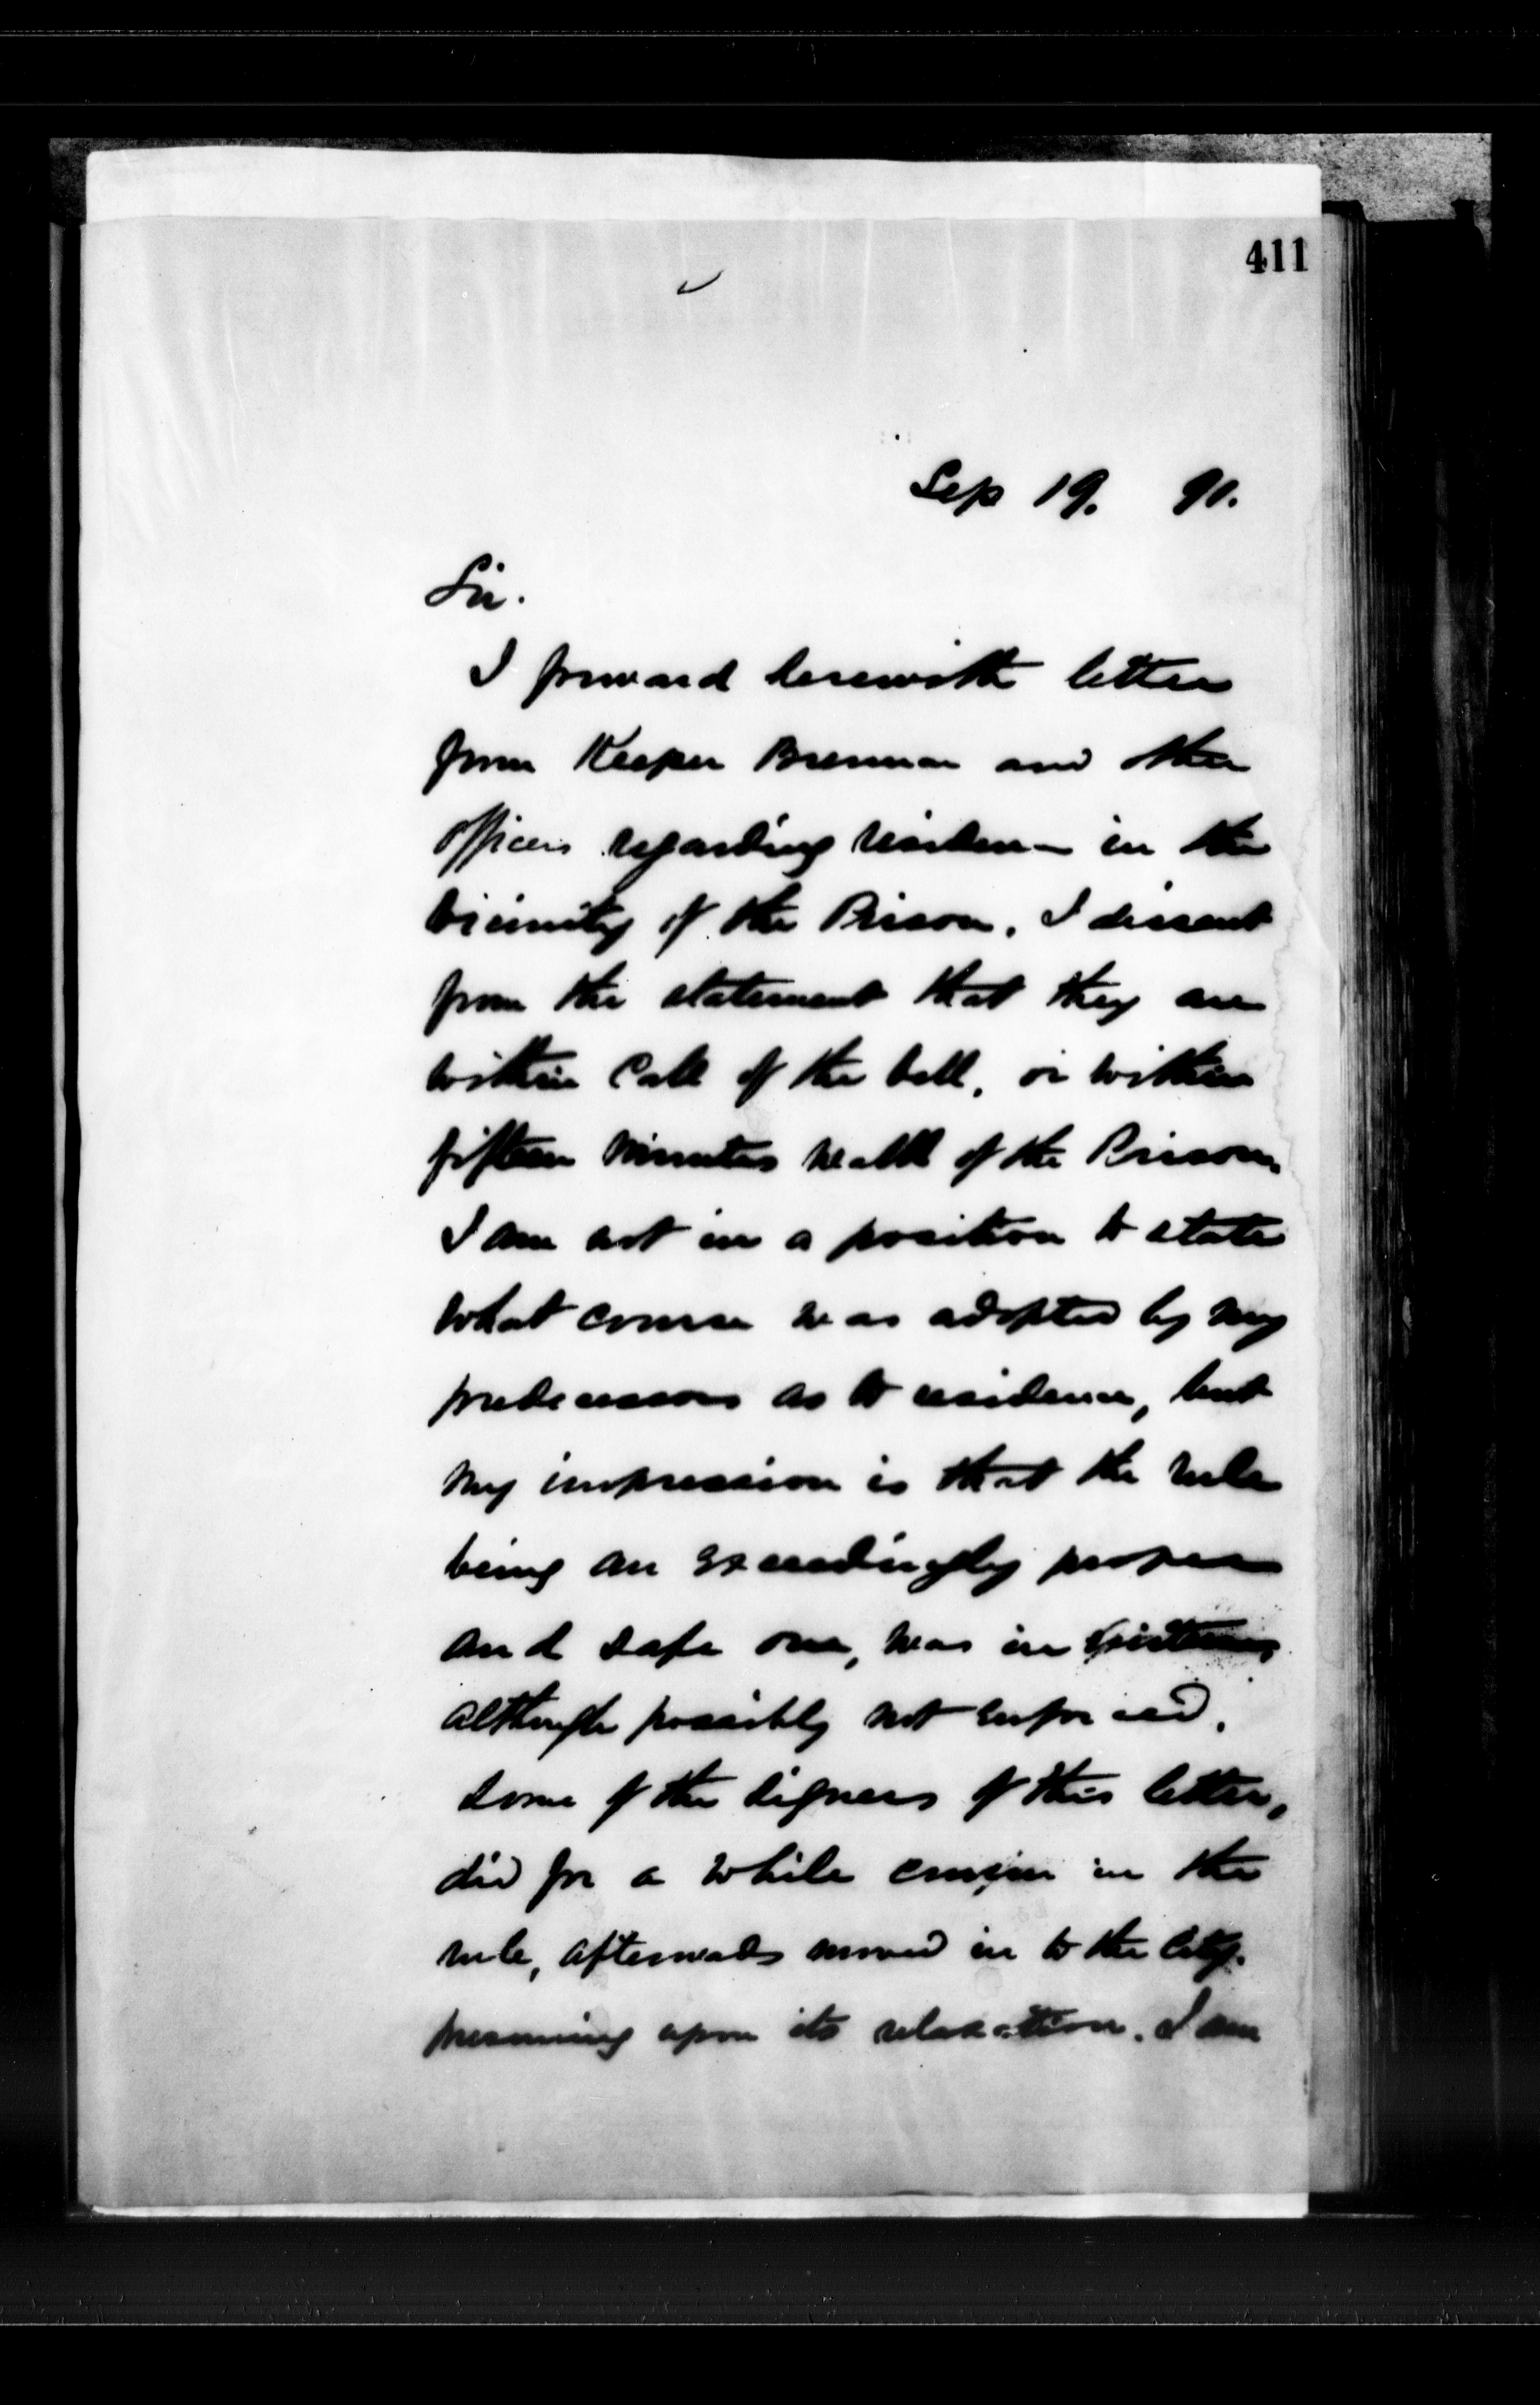 411
Sep 19. 91.
Sir.
I forward herewith letter
from Keeper Brennan and other
officers regarding residence in the
vicinity of the Prison. I dissent
from the statement that they are
within call of the bell, or within
fifteen minutes walk of the Prison.
I am not in a position to state
what course was adopted by my
predecessors as to residence, but
my impression is that the rule
being an exceedingly proper
and safe one, was in existence,
although possibly not enforced.
Some of the signers of this letter,
did for a while in the
rule, afterwards moved in to the City.
presuming upon its relaxation. I am